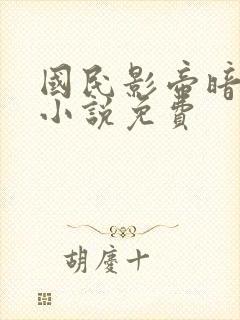 國民影帝暗
小說免費
胡慶十